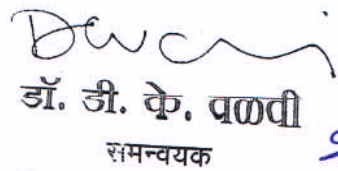 डॉ. डी. के. वळवी
समन्वयक